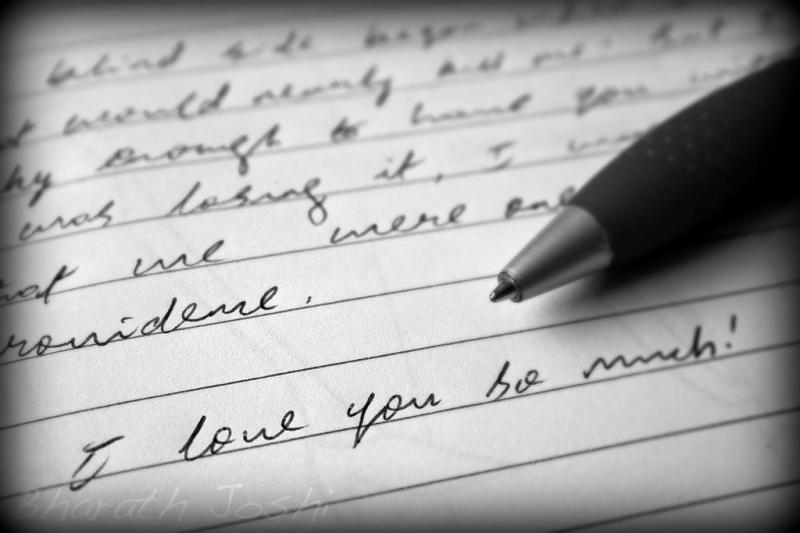 behind side began
would nearly kill me. But
enough to have you
was losing it, I was
me were one
providence.
I love you so much!
Bharath Joshi